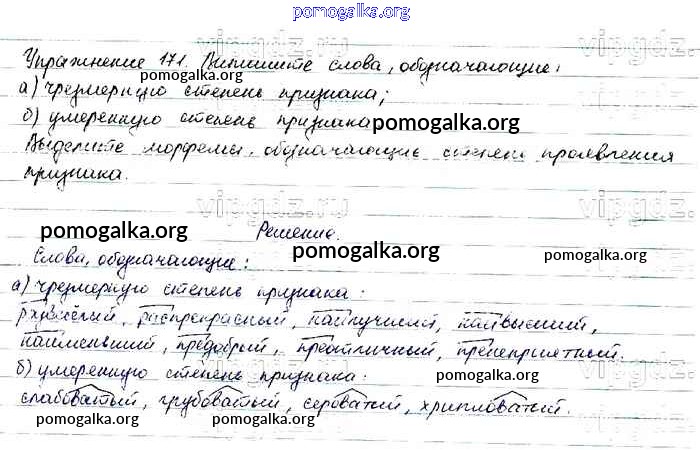 pomogalka.org
Упражнение 171. Выпишите слова, обозначающие:
vipgdz.ru
pomogalka.org
а) чрезмерную степень признака;
б) умеренную степень признака
pomogalka.org
Выделите морфемы, обозначающие степень проявления
признака.
vipgdz.ru
pomogalka.org
Решение.
pomogalka.org
Слова, обозначающие:
pomogalka.org
а) чрезмерную степень признака:
развесёлый, распрекрасный, наилучший, наивысший,
наименьший, предобрый, преотличный, пренеприятный.
б) умеренную степень признака:
pomogalka.org
слабоватый, грубоватый, сероватый, хрипловатый.
pomogalka.org pomogalka.org
vipgdz.ru